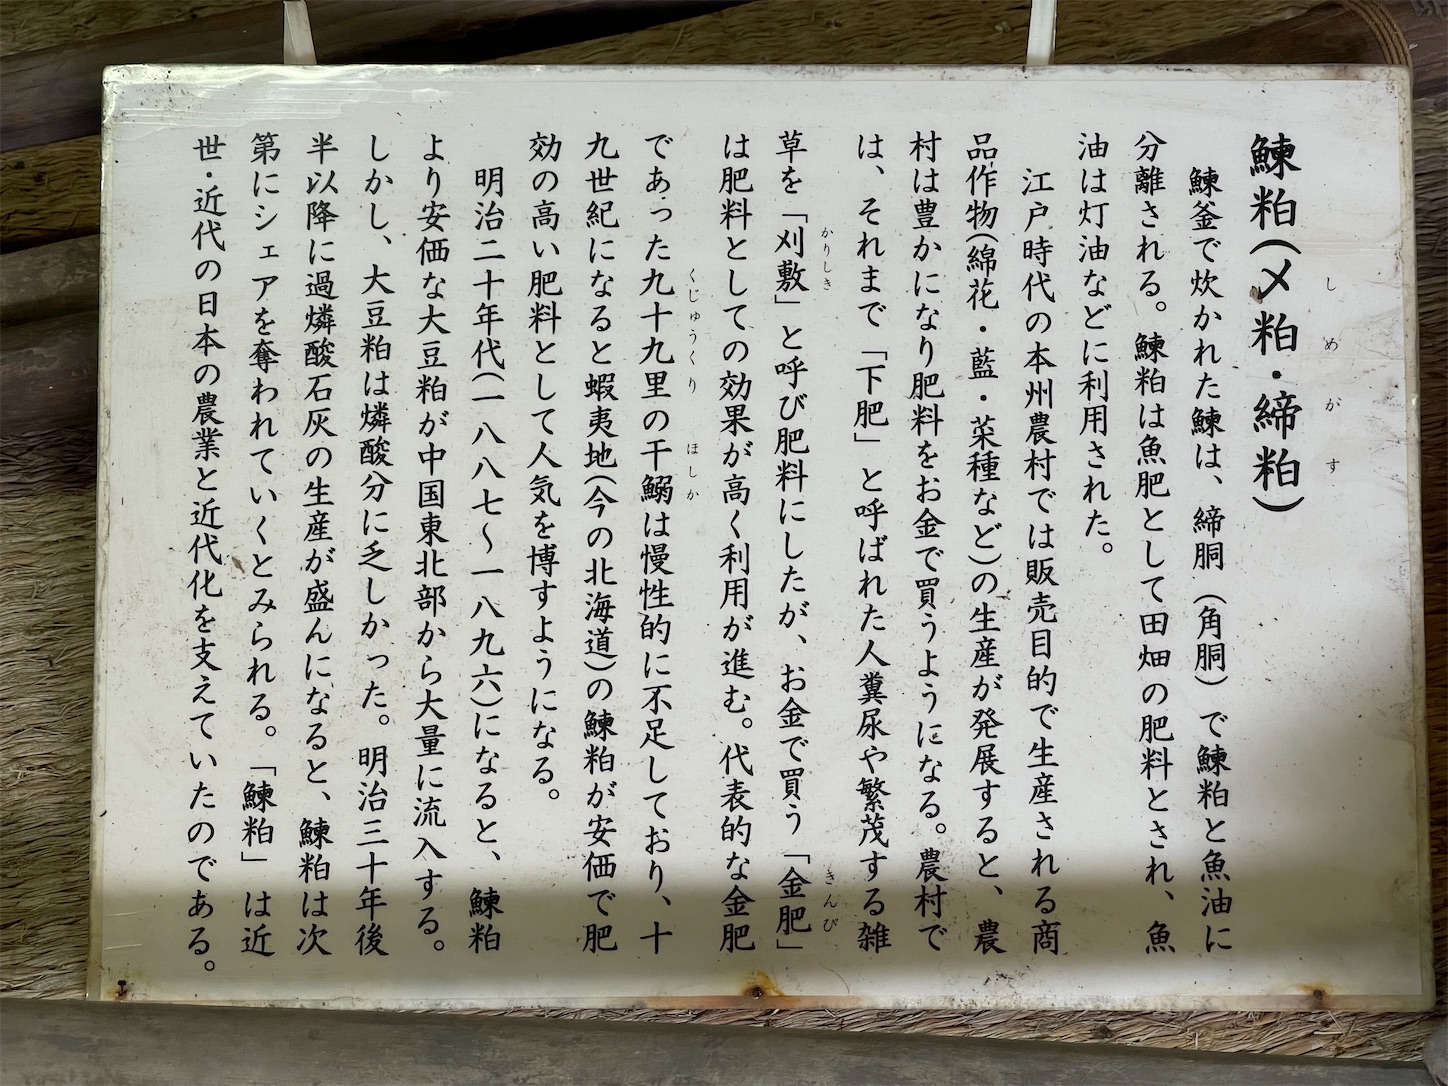 鰊粕(〆粕・締粕)
しめがす
鰊釜で炊かれた鰊は、締胴(角胴)で鰊粕と魚油に
分離される。鰊粕は魚肥として田畑の肥料とされ、魚
油は灯油などに利用された。
江戸時代の本州農村では販売目的で生産される商
品作物(綿花・藍・菜種など)の生産が発展すると、農
村は豊かになり肥料をお金で買うようになる。農村で
は、それまで「下肥」と呼ばれた人糞尿や繁茂する雑
草を「刈敷」と呼び肥料にしたが、お金で買う「金肥」
かりしき
きんぴ
は肥料としての効果が高く利用が進む。代表的な金肥
であった九十九里の干鰯は慢性的に不足しており、十
くじゅうくり
ほしか
九世紀になると蝦夷地(今の北海道)の鰊粕が安価で肥
効の高い肥料として人気を博すようになる。
明治二十年代(一八八七~一八九六)になると、鰊粕
より安価な大豆粕が中国東北部から大量に流入する。
しかし、大豆粕は燐酸分に乏しかった。明治三十年後
半以降に過燐酸石灰の生産が盛んになると、鰊粕は次
第にシェアを奪われていくとみられる。「鰊粕」は近
世・近代の日本の農業と近代化を支えていたのである。